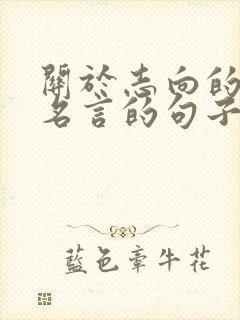 關於志向的
名言的句子
藍色牽牛花